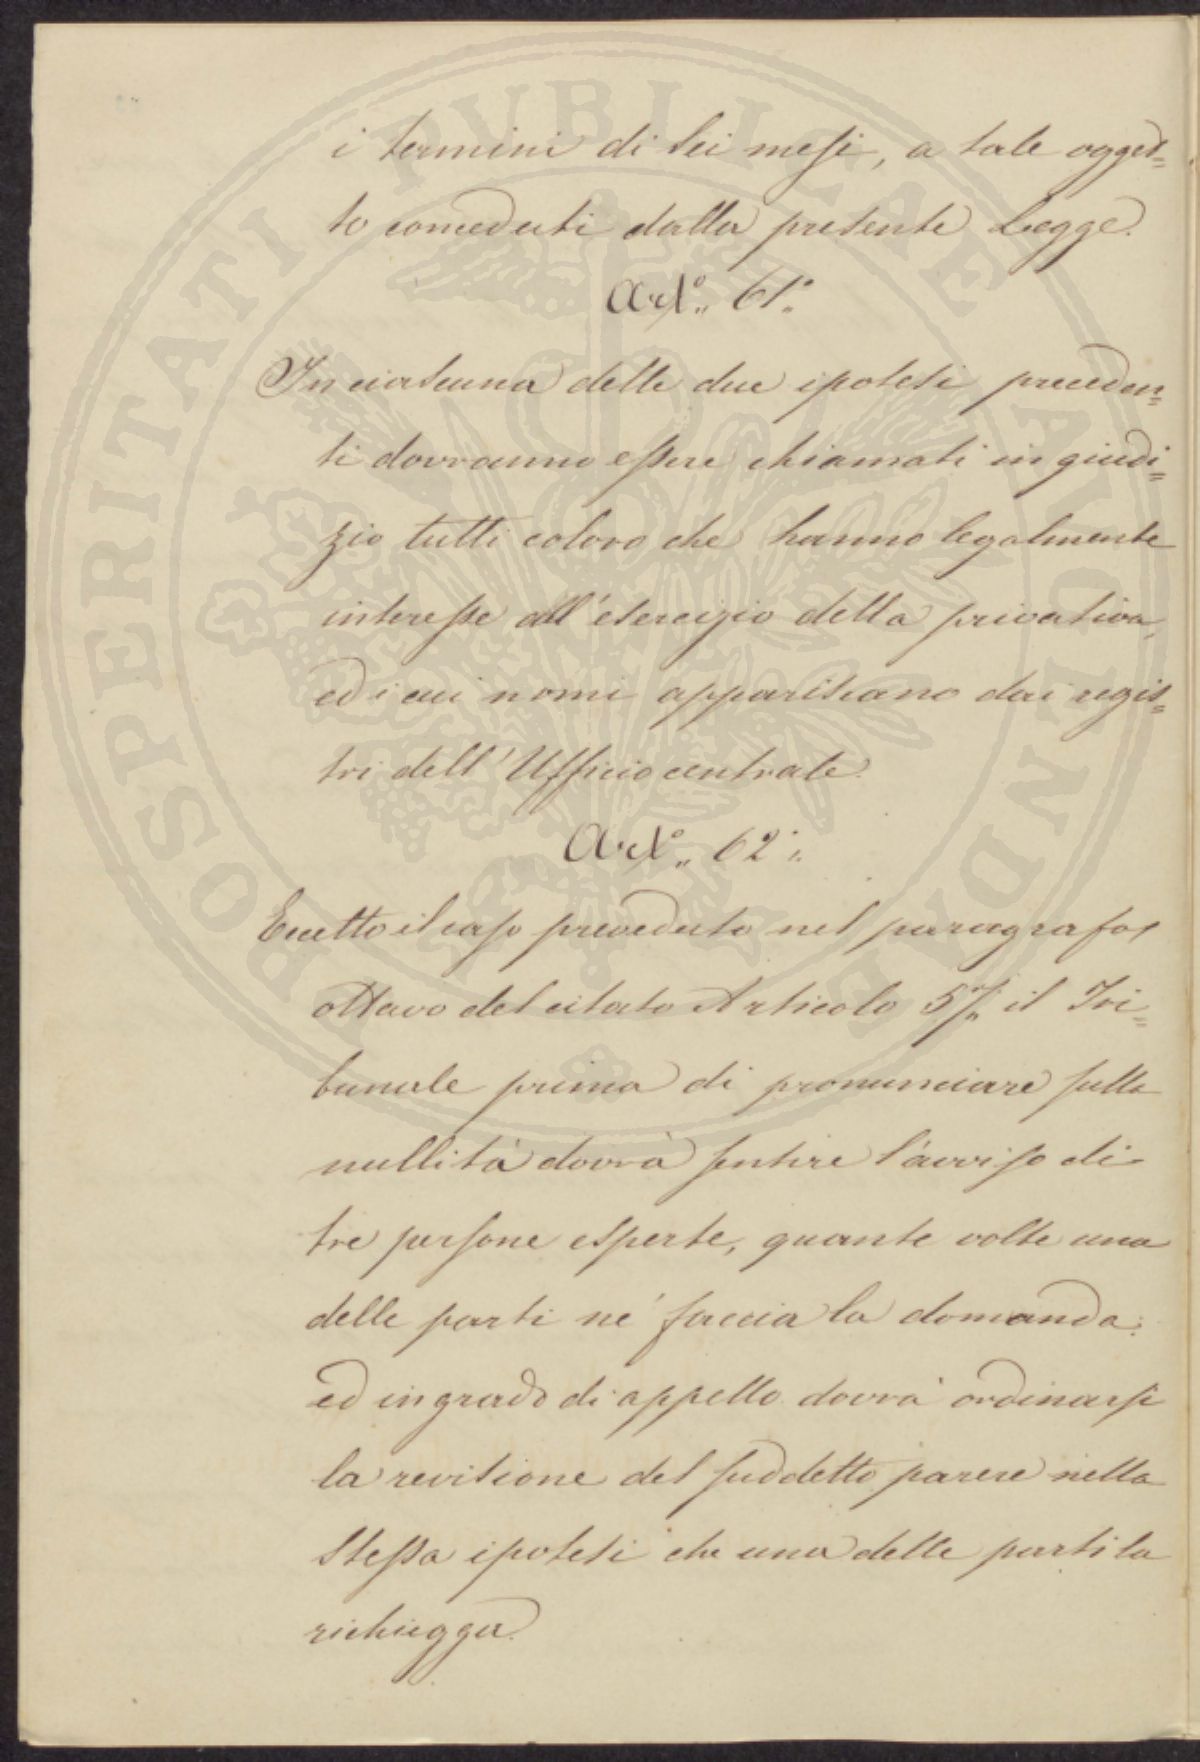 i termini di sei mesi, a tale ogget=
to conceduti dalla presente Legge.
Art.° 61.°
In ciascuna delle due ipotesi preceden=
ti dovranno essere chiamati in giudi=
zio tutti coloro che hanno legalmente
interesse all'esercizio della privativa,
ed i cui nomi appariscano dai regis=
tri dell'Ufficio centrale.
Art.° 62.°
Eccetto il caso preveduto nel paragrafo
ottavo del citato Articolo 57. il Tri=
bunale prima di pronunciare sulla
nullità dovrà sentire l'avviso di
tre persone esperte, quante volte una
delle parti né faccia la domanda:
ed in grado di appello dovrà ordinarsi
la revisione del suddetto parere nella
stessa ipotesi che una delle parti la
richiegga.
PROSPERITATI PUBLICAE AUGENDAE